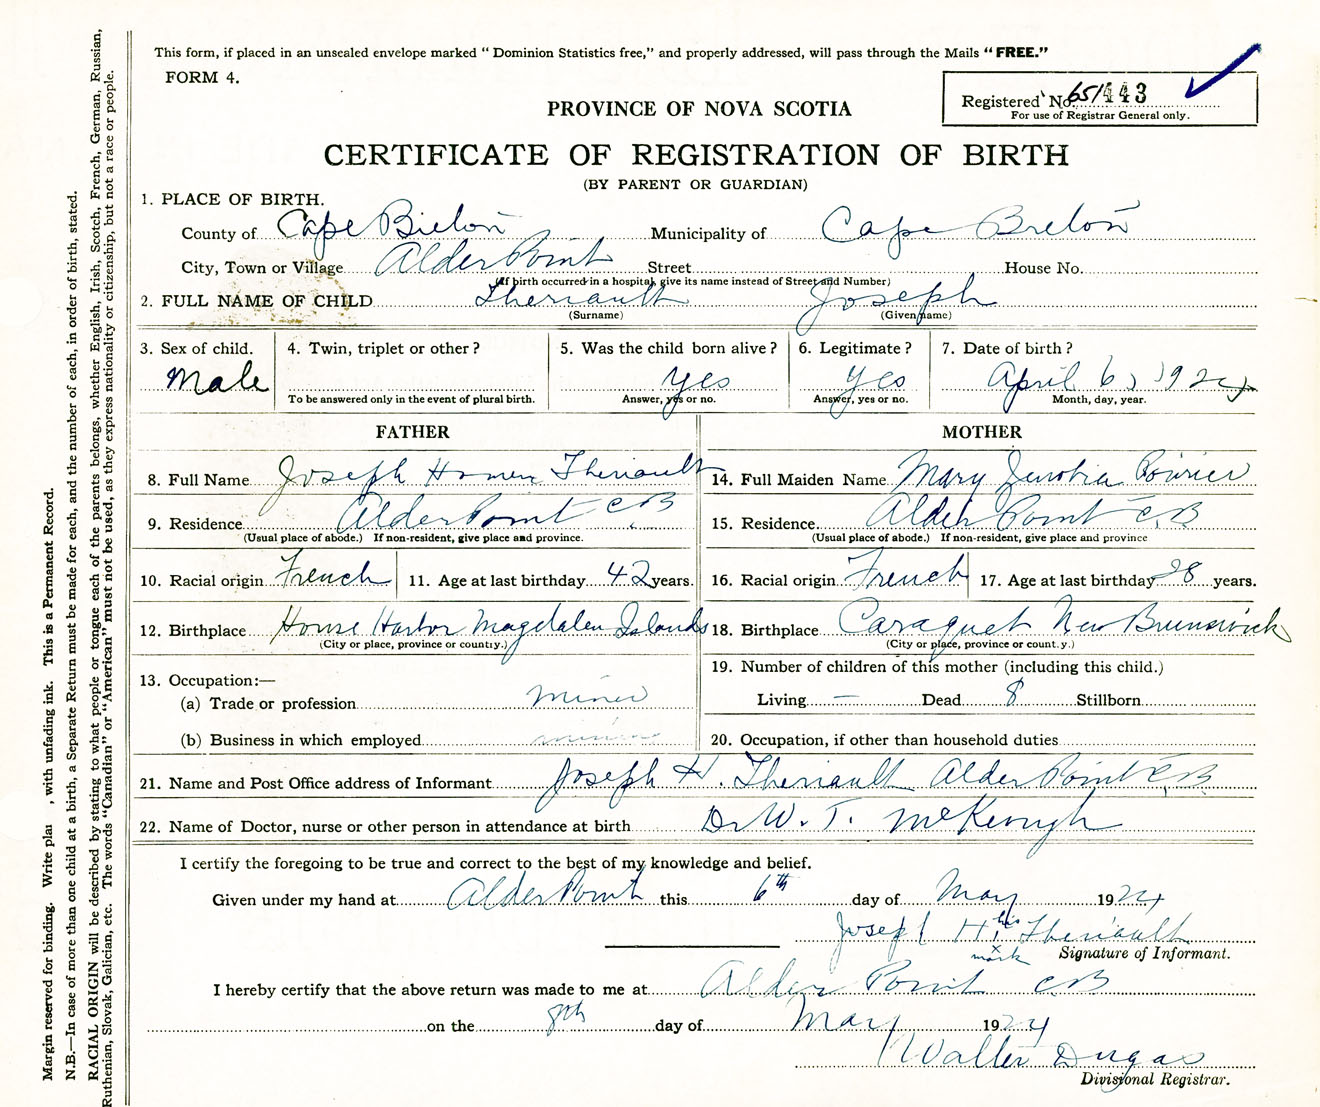 This form, if placed in an unsealed envelope marked " Dominion Statistics free," and properly addressed, will pass through the Mails "FREE."
FORM 4.
Registered No. 651443
For use of Registrar General only.
PROVINCE OF NOVA SCOTIA
CERTIFICATE OF REGISTRATION OF BIRTH
(BY PARENT OR GUARDIAN)
1. PLACE OF BIRTH.
County of Cape Breton Municipality of Cape Breton
City, Town or Village Alder Point Street House No.
(If birth occurred in a hospital, give its name instead of Street and Number)
2. FULL NAME OF CHILD Theriault Joseph
(Surname) (Given name)
3. Sex of child. 4. Twin, triplet or other ? 5. Was the child born alive ? 6. Legitimate ? 7. Date of birth ?
Male yes yes April 6, 1924
To be answered only in the event of plural birth. Answer, yes or no. Answer, yes or no. Month, day, year.
FATHER MOTHER
8. Full Name Joseph Homer Theriault 14. Full Maiden Name Mary Zenobia Poirier
9. Residence Alder Point CB 15. Residence Alder Point C.B
(Usual place of abode.) If non-resident, give place and province. (Usual place of abode.) If non-resident, give place and province
10. Racial origin French 11. Age at last birthday 42 years. 16. Racial origin French 17. Age at last birthday 28 years.
12. Birthplace House Harbor Magdalen Islands 18. Birthplace Caraquet New Brunswick
(City or place, province or country.) (City or place, province or count.y.)
13. Occupation:— 19. Number of children of this mother (including this child.)
(a) Trade or profession miner Living — Dead 8 Stillborn
(b) Business in which employed 20. Occupation, if other than household duties
21. Name and Post Office address of Informant Joseph H. Theriault Alder Point C.B
22. Name of Doctor, nurse or other person in attendance at birth Dr W. T. McKeough
I certify the foregoing to be true and correct to the best of my knowledge and belief.
Given under my hand at Alder Point this 6th day of May 1924
Joseph H. his Theriault
x mark Signature of Informant.
I hereby certify that the above return was made to me at Alder Point CB
on the 8th day of May 1924
Walter Dugas
Divisional Registrar.
Margin reserved for binding. Write plai , with unfading ink. This is a Permanent Record.
N.B.—In case of more than one child at a birth, a Separate Return must be made for each, and the number of each, in order of birth, stated.
RACIAL ORIGIN will be described by stating to what people or tongue each of the parents belongs, whether English, Irish, Scotch, French, German, Russian,
Ruthenian, Slovak, Galician, etc. The words "Canadian" or "American" must not be used, as they express nationality or citizenship, but not a race or people.